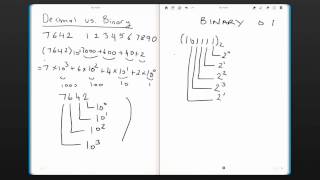 Decimal vs. Binary
7642 1234567890
(7642)10 7000+600+40+2
=7×10³+6×10²+4×10¹+2×10⁰
1000 100 10 1
7642
10⁰
10¹
10²
10³
BINARY 0 1
(10111)₂
2⁰
2¹
2²
2³
2⁴